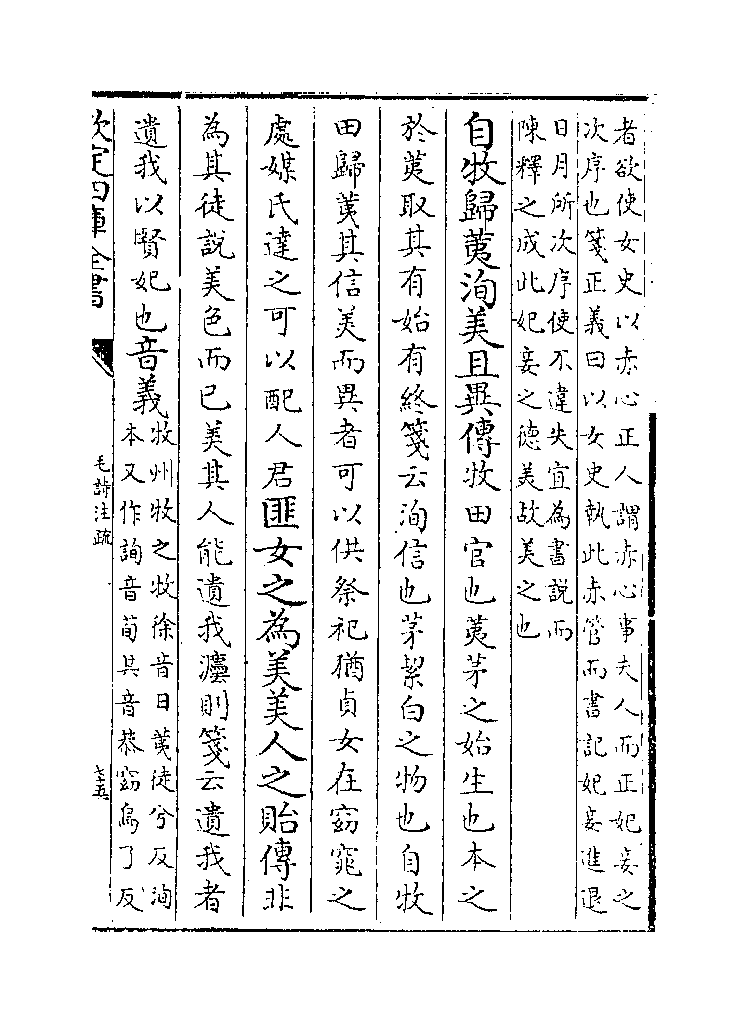 者欲使女史以赤心正人謂赤心事夫人而正妃妾之
次序也箋正義曰以女史執此赤管而書記妃妾進退
日月所次序使不違失宜為書説而
陳釋之成此妃妾之德美故美之也
自牧歸荑洵美且異傳牧田官也荑茅之始生也本之
於荑取其有始有終箋云洵信也茅絜白之物也自牧
田歸荑其信美而異者可以供祭祀猶貞女在窈窕之
處媒氏達之可以配人君匪女之為美美人之貽傳非
為其徒説美色而已美其人能遺我灋則箋云遺我者
遺我以賢妃也音義
牧州牧之牧徐音目荑徒兮反洵
本又作詢音荀共音恭窈烏了反
欽定四庫全書
毛詩注疏
七十五